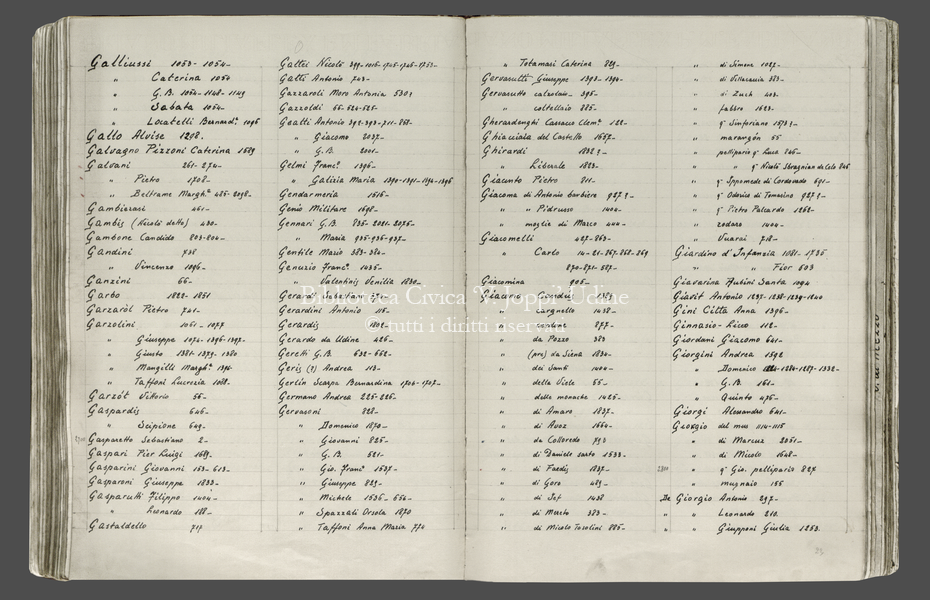 Galliussi 1053-1054-
" Caterina 1054
" G.B. 1054-1148-1149
" Sabata 1054-
" Locatelli Bernard.ª 1096
Gallo Alvise 1208.
Galvagno Pizzoni Caterina 1689
Galvani 261-274-
" Pietro 1708-
" Beltrame Margh.ª 425-2098-
Gambiasai 461-
Gambis (Nicolò detto) 430-
Gambone Candido 803-804-
Gandini 736
" Vincenzo 1096-
Ganzini 66-
Garbo 1828-1851
Garzaról Pietro 741-
Garzolini 1051-1077
" Giuseppe 1074-1296-1397-
" Giusto 1381-1379-1380
" Mangilli Margh.ª
" Taffoni Lucrezia 1018-
Garzót Vittorio 56-
Gaspardis 646-
" Scipione 649-
Gasparetto Sebastiano 2-
Gaspari Pier Luigi
Gasparini Giovanni 153-613-
Gasparoni Giuseppe 1833-
Gasparutti Filippo 1404-
" Leonardo 188-
Gastaldello 717
Gattei Nicolò 399-1016-1745-1746-1753-
Gatti Antonio 743-
Gazzaroli Moro Antonia
Gazzoldi 66-524-525-
Antonio 392-393-711-868-
" Giacomo 2037-
" G.B. 2001-
Gelmi Franc.º 1396-
" Galizia Maria 1390-1391-1394-1396
Gendarmeria 1616-
Genio Militare 1698-
Gennari G.B. 835-2001-2075-
" Maria 935-936-937-
Gentile Mario 383-384-
Genuzio Franc.º 1435-
" Valentinis Venilia 1830-
Biblioteca Civica V. Joppi Udine
Gerardini Antonio 16-
Gerardis
© tutti i diritti riservati
Gerardo da Udine 426-
Geretti G.B. 632-662-
Geris (?) Andrea 113-
Gerlin Scarpa Bernardina 1706-1707-
Germano Andrea 225-226-
Gervasoni 828-
" Domenico 1870-
" Giovanni 825-
" G.B. 521-
" Gio. Franc.º 1537-
" Giuseppe 829-
" Michele 1536-654-
" Spazzali Orsola 1870
" Taffoni Anna Maria 774
" Totamasi Caterina 829-
Gervasutti Giuseppe 1393-1394-
Gervasutto calzolaio 395-
" coltellaio 885-
Gherardenghi Carrasco Clem.ª 122-
Ghiacciala del Castello 1657-
Ghirardi
" Liberale 1823-
Giacinto Pietro 211-
Giacoma di Antonio barbiere
" " Pidrusso 1404-
" moglie di Marco 444-
Giacomelli 427-263-
" Carlo 14-21-267-268-269
870-871-587-
Giacomina 905-
" Cargnello 1438-
877-
" da Pozzo 383
" (pre) da Siena 1834-
" dei Santi 1404-
" della Viola 56-
" delle monache 1425-
" di Amaro 1837-
" di Avoz 1664-
" da Colloredo
" di Daniele sarto 1533-
" di Faedis 1837-
" di Goro 489-
" di 1438
" di Mereto 383-
" di Micolo Tosolini 885-
" di Simone 1087-
" di Villacaccia 383-
" di Zuch 403-
" fabbro 1623-
" q.ᵐ Sinforiano
" marangón 55
" pellipario q.ᵐ Luca 846-
" di Spilimbergo
" q.ᵐ Odorico di Tomasino
" q.ᵐ Pietro Palcardo 1268-
" zodaro 1404-
" 718-
Giardino d'Infanzia 1081-1735
" " Fior 603
Giavarina Rubini Santa 1094
Giavit Antonio 1297-1298-1299-1240
Gini Città Anna 1396-
Ginnasio-Liceo 112-
Giordani Giacomo 641-
Giorgini Andrea 1592
" Domenico
" G.B. 161-
" Quinto 476-
Giorgi Alessandro 641-
Giorgio del mus 1114-1115
" di Marcuz 2051-
" di Micolo 1648-
" q.ᵐ Gio. pellipario 827
" mugnaio 155
De Giorgio Antonio 297-
" Leonardo 210-
" Giupponi Giulia 1253-